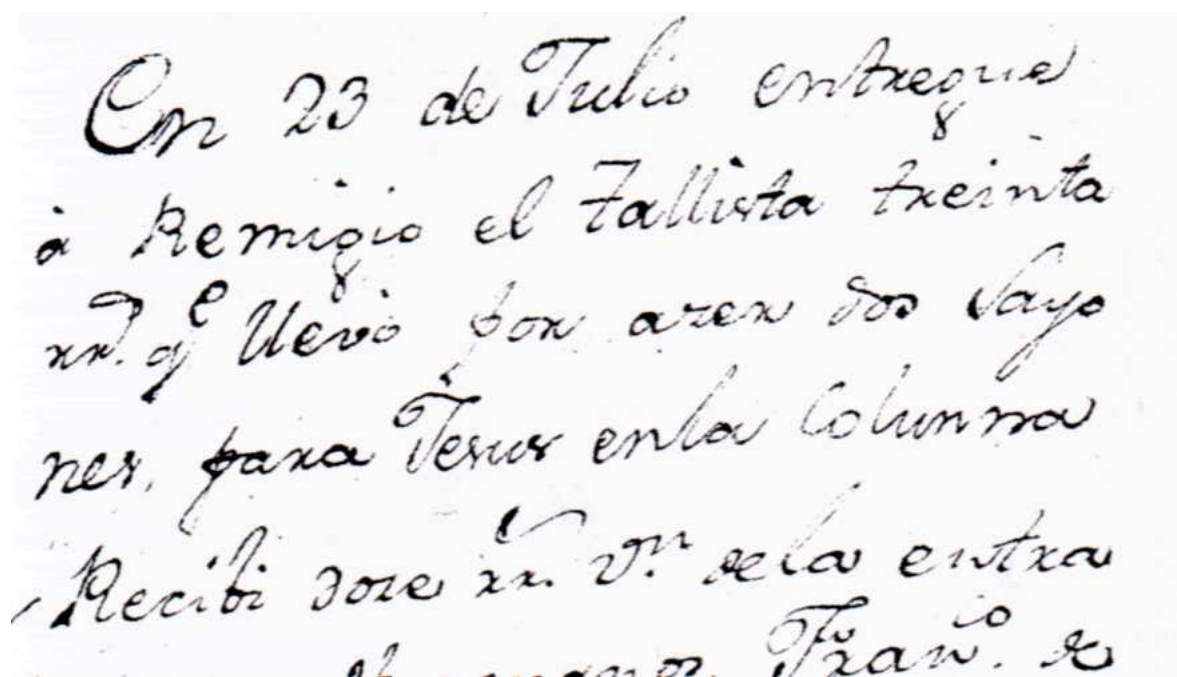 En 23 de Julio entregue
à Remigio el Tallista treinta
rr.ˢ q.ᵉ llevò por azer dos Sayo
nes, para Jesus enla Colunna
Recibi doze rr.ˢ v.ⁿ dela entra
Fran.ᶜᵒ de